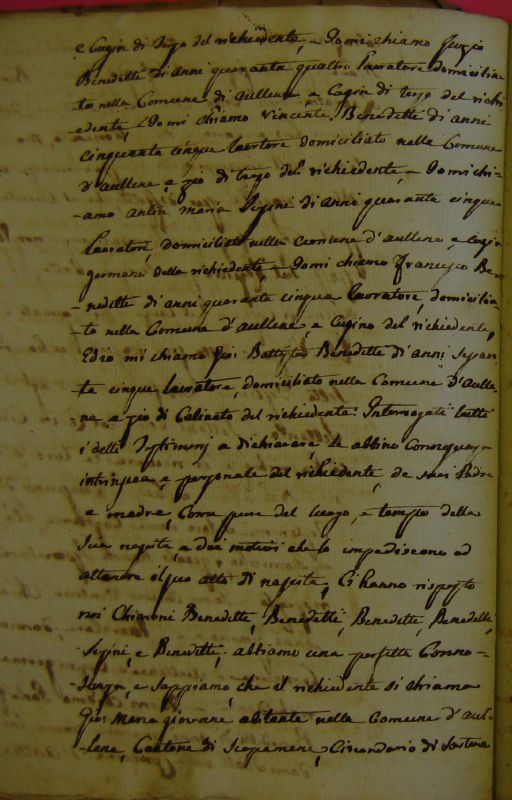 e Cugin di terzo del richiedente, - Io mi chiamo
Benedetti di anni quaranta quattro lavratore domicilia-
to nella Comune di Aullene e Cugin di terzo del richi-
edente, Io mi chiamo Vincente Benedetti di anni
cinquanta cinque lavratore domiciliato nella Comune
d'aullene, e zio di terzo del richiedente, - Io mi chi-
-amo anton maria Sepini di anni quaranta cinque
lavratore, domiciliato nella comune d'aullene, e Cugin
germano della richiedente - Io mi chiamo francesco Be-
-nedetti di anni quaranta cinque lavratore, domicilia-
-to nella Comune d'aullene, e Cugino del richiedente,
Ed io mi chiamo Gio: Battista Benedetti d'anni sessan-
ta cinque lavratore, domiciliato nella Comune d'Aulle-
-ne, e zio di del richiedente: Interrogati tutti
i detti Testimonj a dichiarare, se abbino Conoscenza
intrinseca, e personale del richiedente, de suoi Padre
e madre, Come pure del luogo, e tempo della
sua nascita, e dei motivi che lo impediscono ad
ottenere il suo atto di nascita, Ci hanno risposto
noi Chiaroni Benedetti, Benedetti, Benedetti, Benedetti,
Sepini, e Benedetti; abbiamo una perfetta Conno-
-scenza, e sappiamo, che il richiedente si chiama
Gio: Maria giovani abitante nella Comune d'aul-
-lene, Cantone di Scopamene, Circondario di Sartena